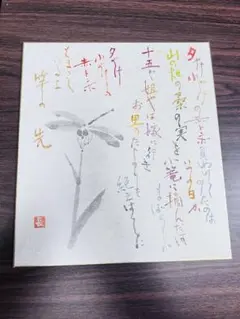 夕やけ小やけの赤とんぼ負われてみたのは
いつの日か
山の畑の桑の実を小籠に摘んだは
まぼろしか
十五で姐やは嫁に行き
お里のたよりも絶えはてた
夕やけ
小やけの
赤とんぼ
とまって
いるよ
竿の先